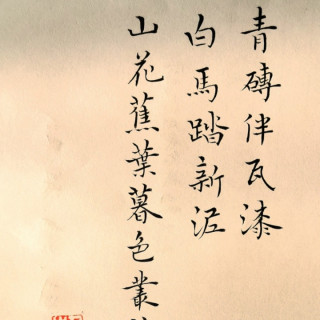 青磚伴瓦漆
白馬踏新泥
山花蕉葉暮色叢